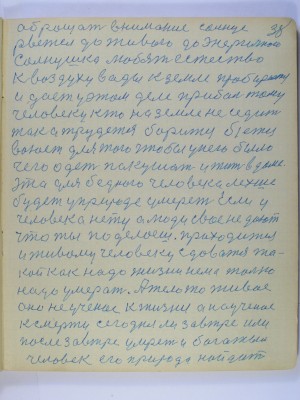 обращат внимание солнце 38
рвется до живого до энергичного
Солнушка любят естество
к воздуху к воды к земле
и дает у этом деле прибал тому
человеку кто на земле не седит
а трудется барится бежи
воюет для того чтобы у него было
чего одет покушат и жит в доме
эта для бедного человека легше
будет у природе умерет Если у
человека нету а люди свое не дают
что ты поделаеш. приходится
и живому человеку сдоватся та-
кой как надо жизни нема толко
надо умерат. А тело то живое
оно не ученое к жизни а научено
к смерти сегодня ли завтре или
после завтре умрет и багатый
человек его природа найдет